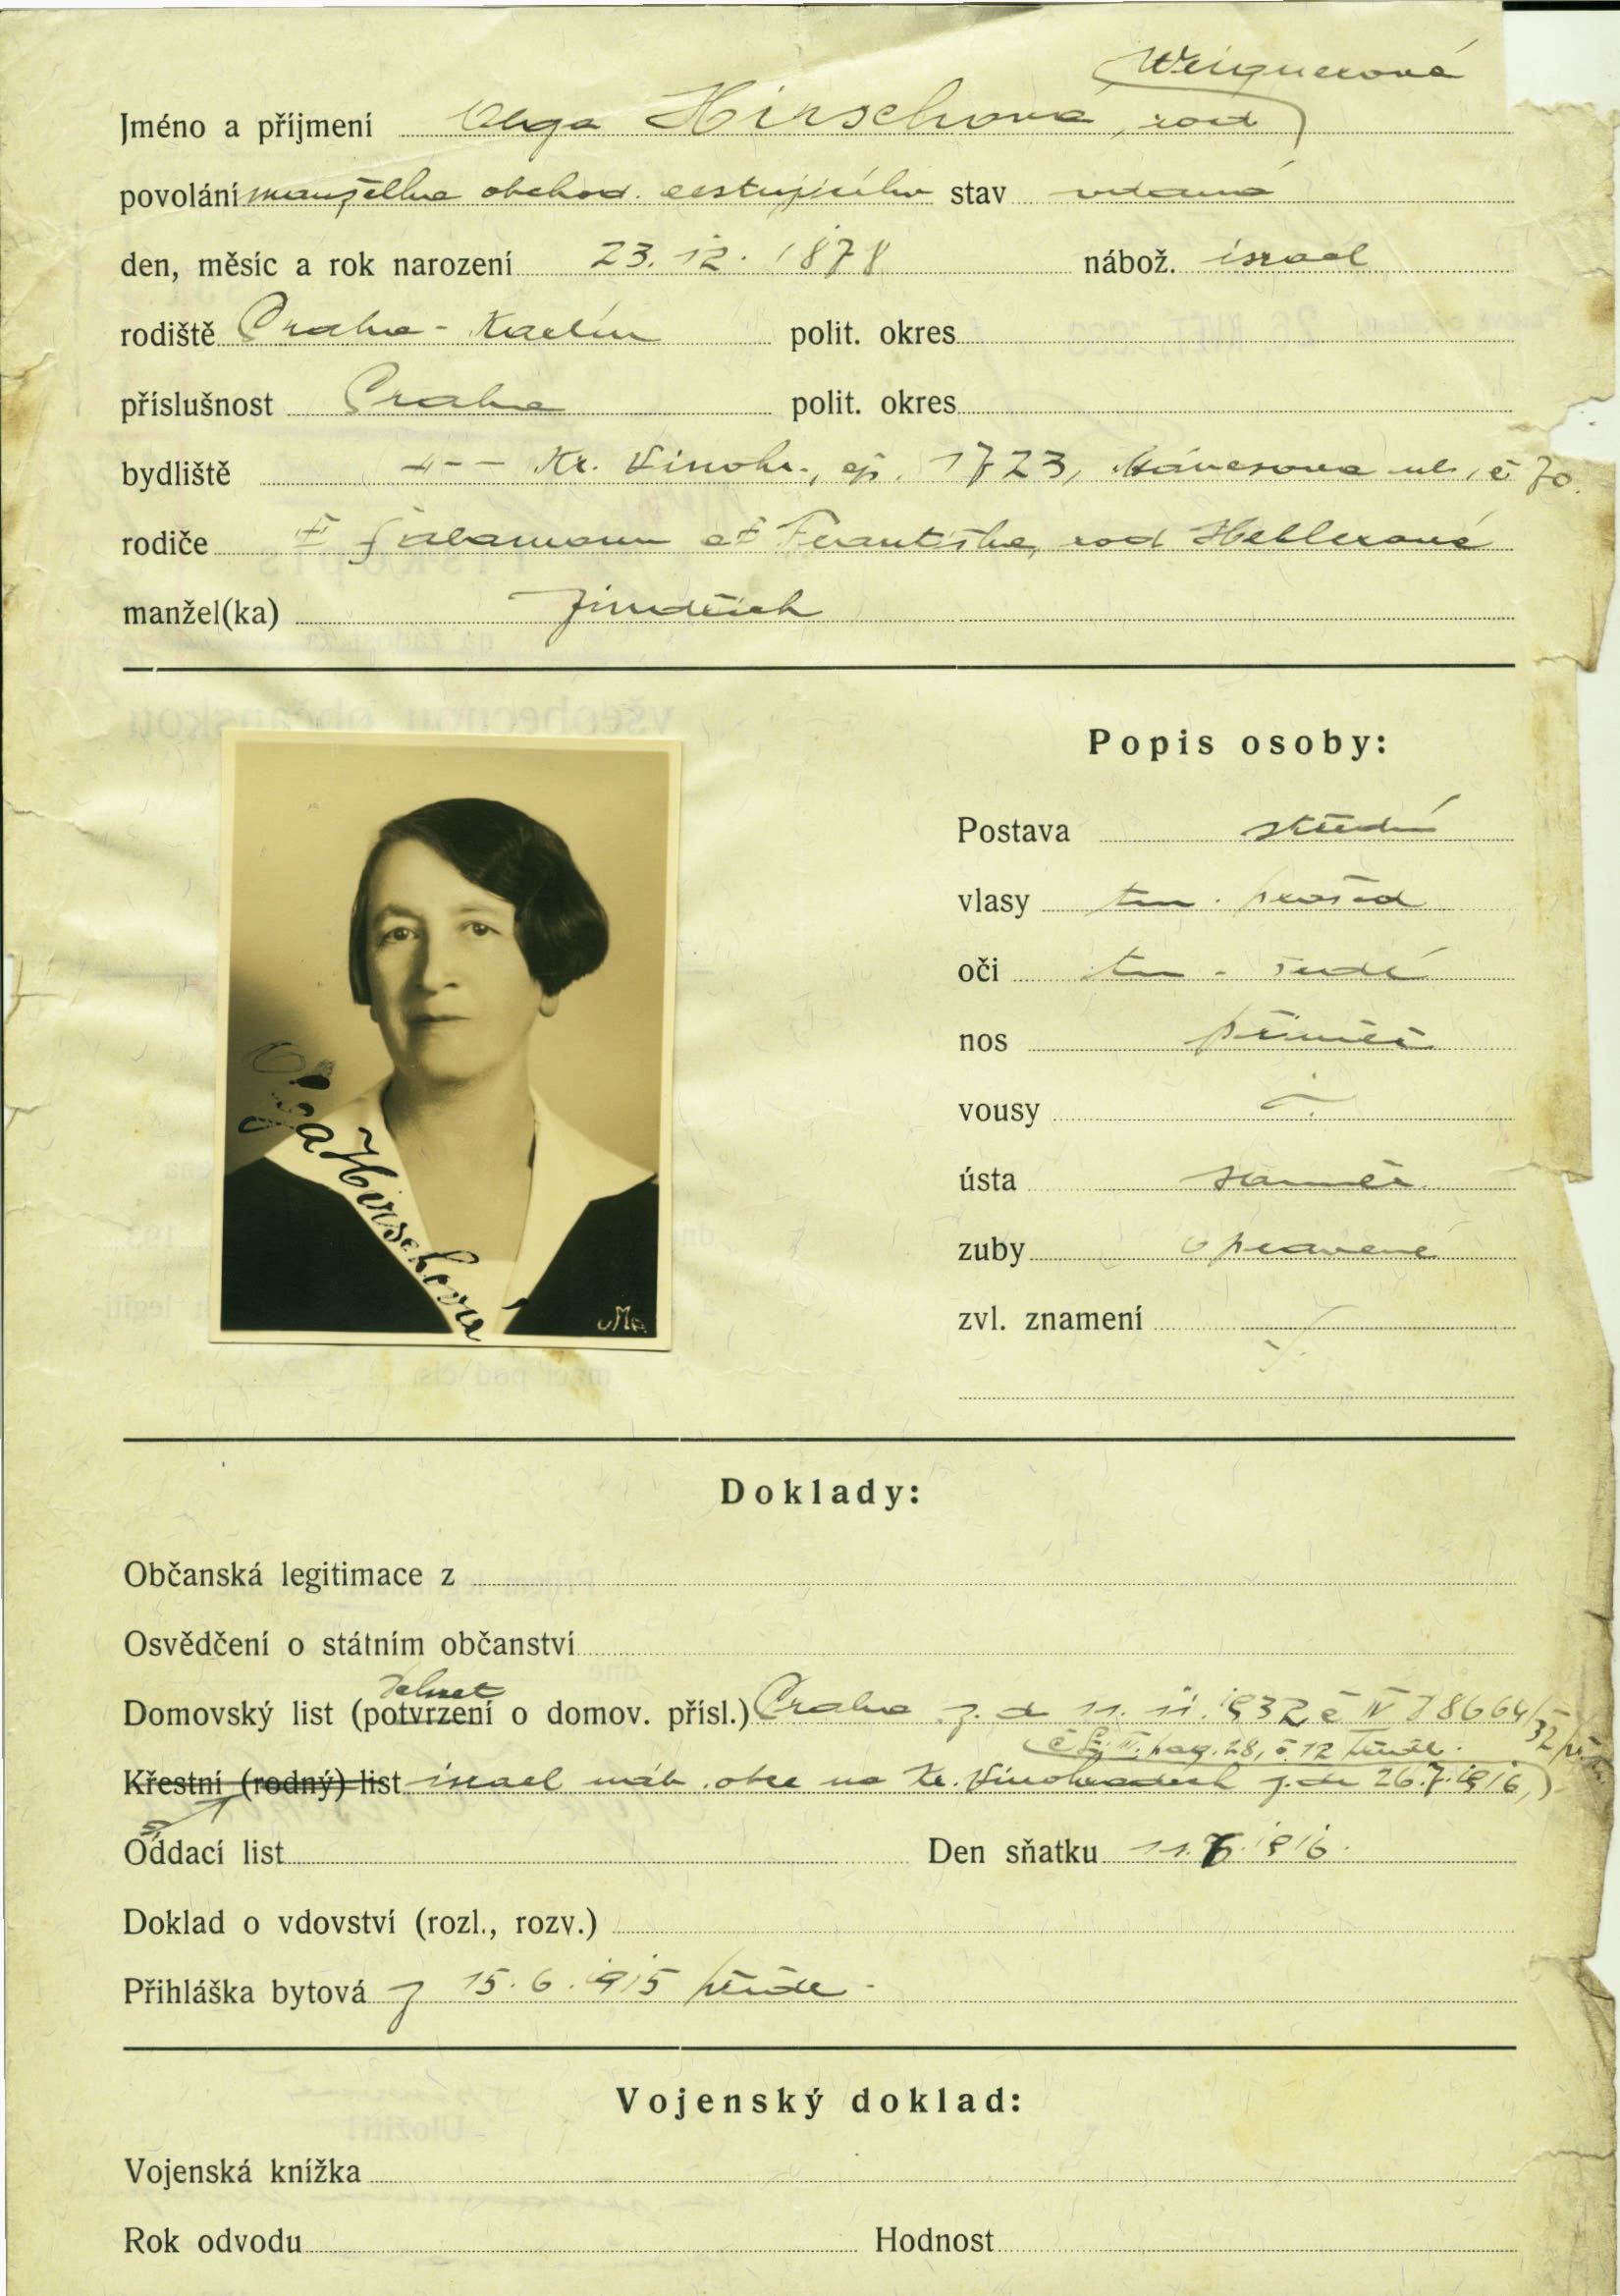 Weignerová
Jméno a příjmení Olga Hirschová, roz
povolání manželka obchod. cestujícího stav vdaná
den, měsíc a rok narození 23. 12. 1878 nábož. israel
rodiště Praha - Karlín polit. okres
příslušnost Praha polit. okres
bydliště Kr. Vinohr., čp. 1723, Mánesova ul., č 70.
rodiče Františka, roz Hellerové
manžel(ka) Jindřich
Popis osoby:
Postava střední
vlasy tm. prošed
oči tm. šedé
nos přiměř
vousy
ústa souměr.
zuby opravené
zvl. znamení
Olga Hirschová
Doklady:
Občanská legitimace z
Osvědčení o státním občanství
Domovský list (potvrzení o domov. přísl.) Praha z. d 11. 11. 1932 č IV 78664/32
pag. 28, č. 12
Křestní (rodný) list israel náb. obce na Kr. Vinohradech z. d. 26.7.1916,)
Oddací list Den sňatku 11. 6. 1916.
Doklad o vdovství (rozl., rozv.)
Přihláška bytová z 15. 6. 1915
Vojenský doklad:
Vojenská knížka
Rok odvodu Hodnost